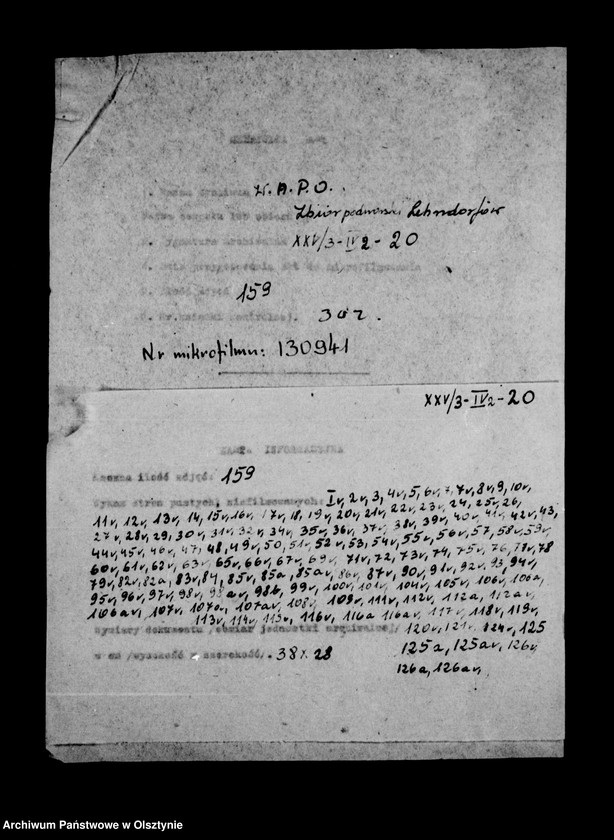 W.A.P.O.
Zbiór podworski Lehndorfów
XXV/3-IV2-20
159
302.
Nr mikrofilmu: 130941
XXV/3-IV2-20
KARTA INFORMACYJNA
Łączna ilość zdjęć: 159
Wykaz stron pustych, niefilmowanych: Iv, 2v, 3, 4v, 5, 6v, 7, 7v, 8v, 9, 10v,
11v, 12v, 13v, 14, 15v, 16v, 17v, 18, 19v, 20v, 21v, 22v, 23v, 24, 25v, 26,
27v, 28v, 29, 30v, 31v, 32v, 34v, 35v, 36v, 37v, 38v, 39v, 40v, 41v, 42v, 43,
44v, 45v, 46v, 47, 48, 49v, 50, 51v, 52v, 53, 54v, 55v, 56v, 57, 58v, 59v,
60v, 61v, 62v, 63v, 65v, 66v, 67v, 69v, 71v, 72, 73v, 74v, 75v, 76, 78v, 78
79v, 82v, 82a, 83v, 84, 85v, 85a, 85av, 86v, 87v, 90v, 91v, 92v, 93, 94v,
95v, 96v, 97v, 98v, 98av, 98b, 99v, 100v, 101v, 104v, 105v, 106v, 106a,
106av, 107v, 107a, 107av, 108v, 109v, 111v, 112v, 112a, 112av,
113v, 114v, 115v, 116v, 116a, 116av, 117v, 118v, 119v,
wymiary dokumentu /obwiar jednostki archiwalnej/ 120v, 121v, 124v, 125
w cm /wysokość x szerokość/. 38 x 28 125a, 125av, 126v,
126a, 126av,
Archiwum Państwowe w Olsztynie